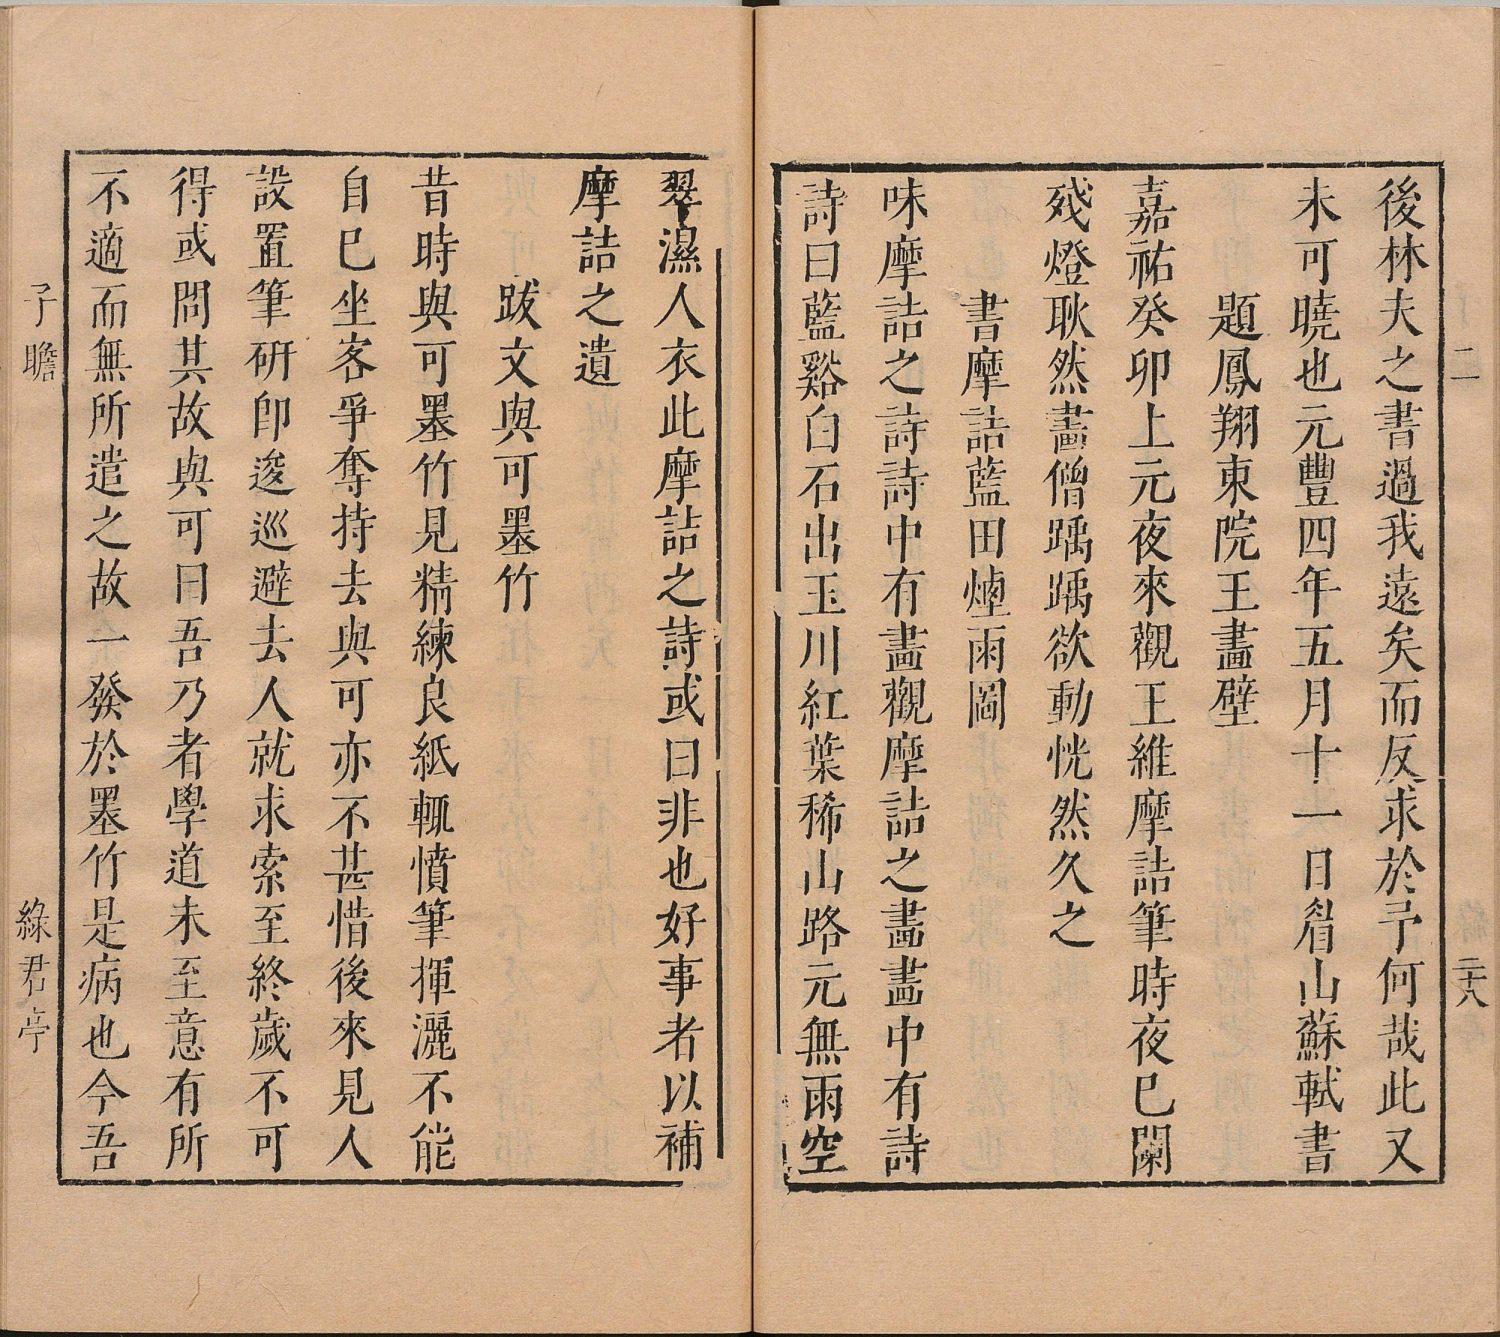 後林夫之書過我遠矣而反求於予何哉此又
未可曉也元豐四年五月十一日眉山蘇軾書
題鳳翔東院王畫壁
嘉祐癸卯上元夜來觀王維摩詰筆時夜已闌
殘燈耿然畫僧踽踽欲動恍然久之
書摩詰藍田煙雨圖
味摩詰之詩詩中有畫觀摩詰之畫畫中有詩
詩曰藍谿白石出玉川紅葉稀山路元無雨空
翠濕人衣此摩詰之詩或曰非也好事者以補
摩詰之遺
跋文與可墨竹
昔時與可墨竹見精練良紙輒憤筆揮灑不能
自已坐客爭奪持去與可亦不甚惜後來見人
設置筆研即逡巡避去人就求索至終歲不可
得或問其故與可曰吾乃者學道未至意有所
不適而無所遣之故一發於墨竹是病也今吾
二
二十八
子瞻
綠君亭